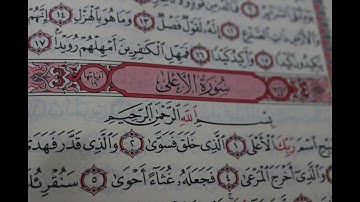 إِنَّهُ لَقَوْلٌ فَصْلٌ ١٣ وَمَا هُوَ بِالْهَزْلِ ١٤ إِنَّهُمْ
وَأَكِيدُ كَيْدًا ١٦ فَمَهِّلِ الْكَافِرِينَ أَمْهِلْهُمْ رُوَيْدًا ١٧
سُورَةُ الأَعْلَى
بِسْمِ اللَّهِ الرَّحْمَٰنِ الرَّحِيمِ
اسْمَ رَبِّكَ الْأَعْلَى ١ الَّذِي خَلَقَ فَسَوَّىٰ ٢ وَالَّذِي قَدَّرَ فَهَدَىٰ
وَالَّذِي أَخْرَجَ الْمَرْعَىٰ ٤ فَجَعَلَهُ غُثَاءً أَحْوَىٰ ٥ سَنُقْرِئُكَ